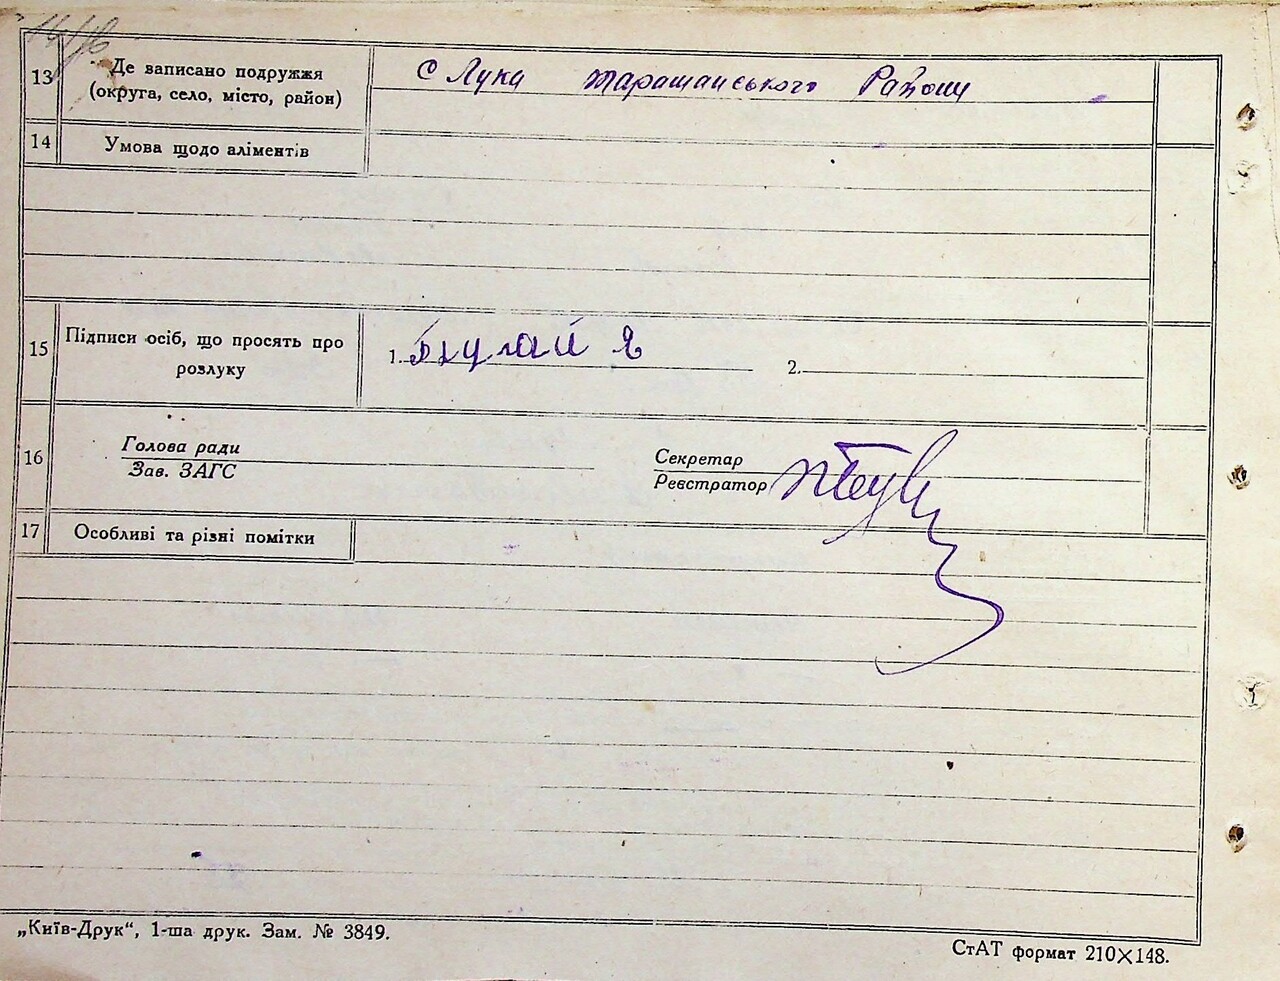 14/16
13 Де записано подружжя (округа, село, місто, район) с Лука Таращанського Району
14 Умова щодо аліментів
15 Підписи осіб, що просять про розлуку 1. Бугай Я 2.
16 Голова ради Зав. ЗАГС Секретар Реєстратор
17 Особливі та різні помітки
„Київ-Друк“, 1-ша друк. Зам. № 3849.
СтАТ формат 210×148.